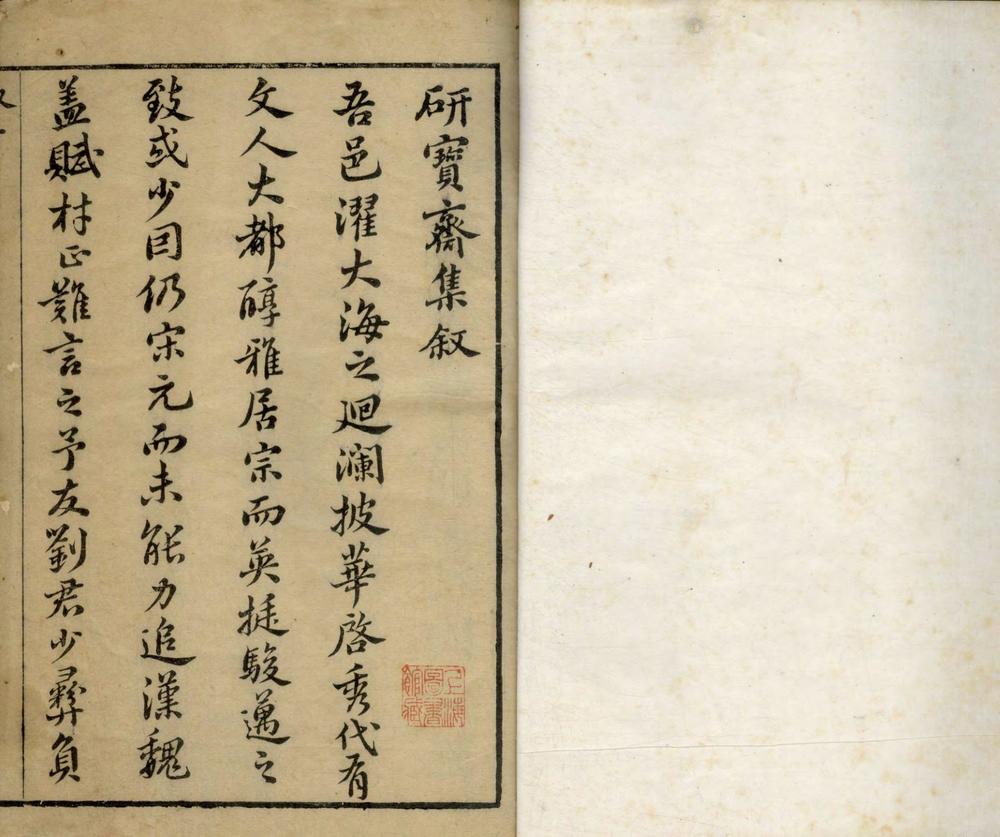 研寶齋集叙
吾邑濯大海之廻瀾披華啓秀代有
文人大都醇雅居宗而英挺駿邁之
致或少因仍宋元而未能力追漢魏
盖賦材正難言之予友劉君少彝負
上海圖書館藏